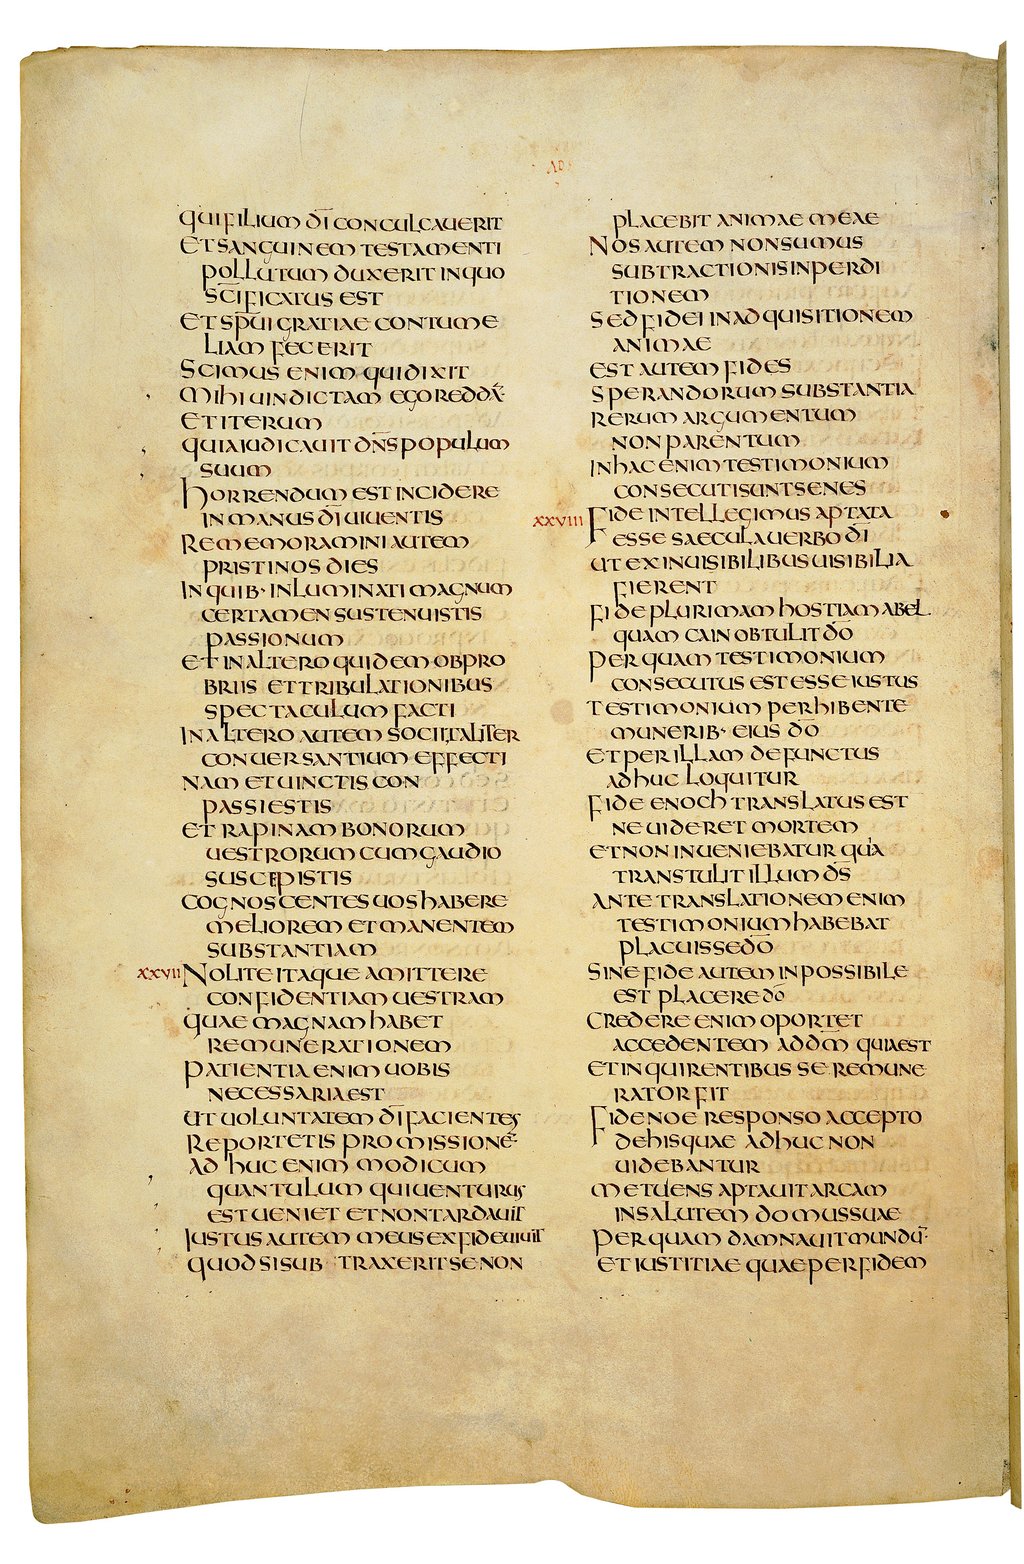 AD
QUI FILIUM DĪ CONCULCAUERIT
ET SANGUINEM TESTAMENTI
POLLUTUM DUXERIT IN QUO
SCĪFICATUS EST
ET SPŪI GRATIAE CONTUME
LIAM FECERIT
SCIMUS ENIM QUI DIXIT
MIHI UINDICTAM EGO REDDĀ·
ET ITERUM
QUIA IUDICAUIT DN̄S POPULUM
SUUM
HORRENDUM EST INCIDERE
IN MANUS DĪ UIUENTIS
REMEMORAMINI AUTEM
PRISTINOS DIES
IN QUIB· INLUMINATI MAGNUM
CERTAMEN SUSTENUISTIS
PASSIONUM
ET IN ALTERO QUIDEM OBPRO
BRIIS ET TRIBULATIONIBUS
SPECTACULUM FACTI
IN ALTERO AUTEM SOCII TALITER
CONUERSANTIUM EFFECTI
NAM ET UINCTIS CON
PASSI ESTIS
ET RAPINAM BONORUM
UESTRORUM CUM GAUDIO
SUSCEPISTIS
COGNOSCENTES UOS HABERE
MELIOREM ET MANENTEM
SUBSTANTIAM
XXVII NOLITE ITAQUE AMITTERE
CONFIDENTIAM UESTRAM
QUAE MAGNAM HABET
REMUNERATIONEM
PATIENTIA ENIM UOBIS
NECESSARIA EST
UT UOLUNTATEM DĪ FACIENTES
REPORTETIS PROMISSIONĒ·
AD HUC ENIM MODICUM
QUANTULUM QUI UENTURUS
EST UENIET ET NON TARDAUIT
IUSTUS AUTEM MEUS EX FIDE UIUIT
QUOD SI SUBTRAXERIT SE NON
PLACEBIT ANIMAE MEAE
NOS AUTEM NON SUMUS
SUBTRACTIONIS IN PERDI
TIONEM
SED FIDEI IN ADQUISITIONEM
ANIMAE
EST AUTEM FIDES
SPERANDORUM SUBSTANTIA
RERUM ARGUMENTUM
NON PARENTUM
IN HAC ENIM TESTIMONIUM
CONSECUTI SUNT SENES
XXVIII FIDE INTELLEGIMUS APTATA
ESSE SAECULA UERBO DĪ
UT EX INUISIBILIBUS UISIBILIA
FIERENT
FIDE PLURIMAM HOSTIAM ABEL
QUAM CAIN OBTULIT DŌ
PER QUAM TESTIMONIUM
CONSECUTUS EST ESSE IUSTUS
TESTIMONIUM PERHIBENTE
MUNERIB· EIUS DŌ
ET PER ILLAM DEFUNCTUS
ADHUC LOQUITUR
FIDE ENOCH TRANSLATUS EST
NE UIDERET MORTEM
ET NON INUENIEBATUR QUIA
TRANSTULIT ILLUM DS̄
ANTE TRANSLATIONEM ENIM
TESTIMONIUM HABEBAT
PLACUISSE DŌ
SINE FIDE AUTEM INPOSSIBILE
EST PLACERE DŌ
CREDERE ENIM OPORTET
ACCEDENTEM AD DM̄ QUIA EST
ET INQUIRENTIBUS SE REMUNE
RATOR FIT
FIDE NOE RESPONSO ACCEPTO
DE HIS QUAE ADHUC NON
UIDEBANTUR
METUENS APTAUIT ARCAM
IN SALUTEM DOMUS SUAE
PER QUAM DAMNAUIT MUNDŪ·
ET IUSTITIAE QUAE PER FIDEM